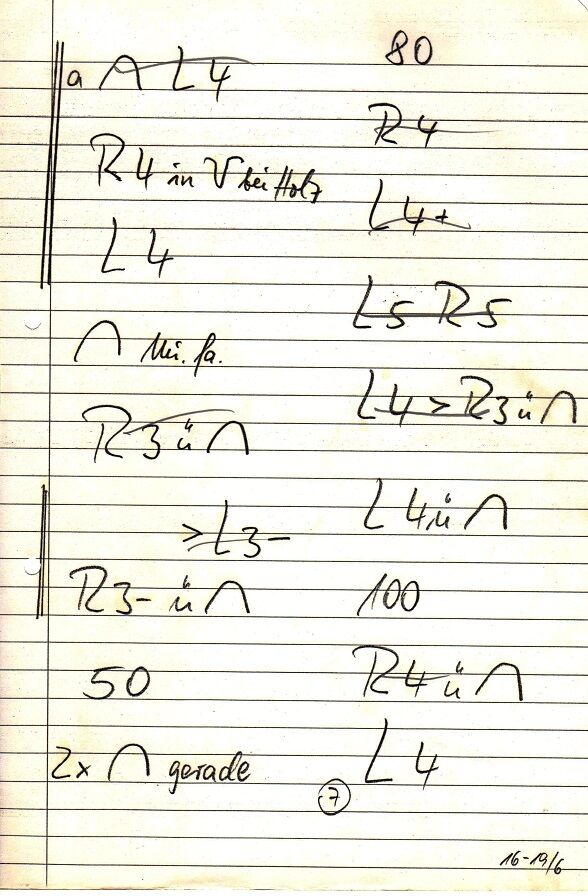 a ∩ L4
R4 in V bei Holz
L4
∩
R3 ü ∩
> L3-
R3- ü ∩
50
2x ∩ gerade
80
R4
L4+
L5 R5
L4 > R3 ü ∩
L4 ü ∩
100
R4 ü ∩
L4
7
16-19/6